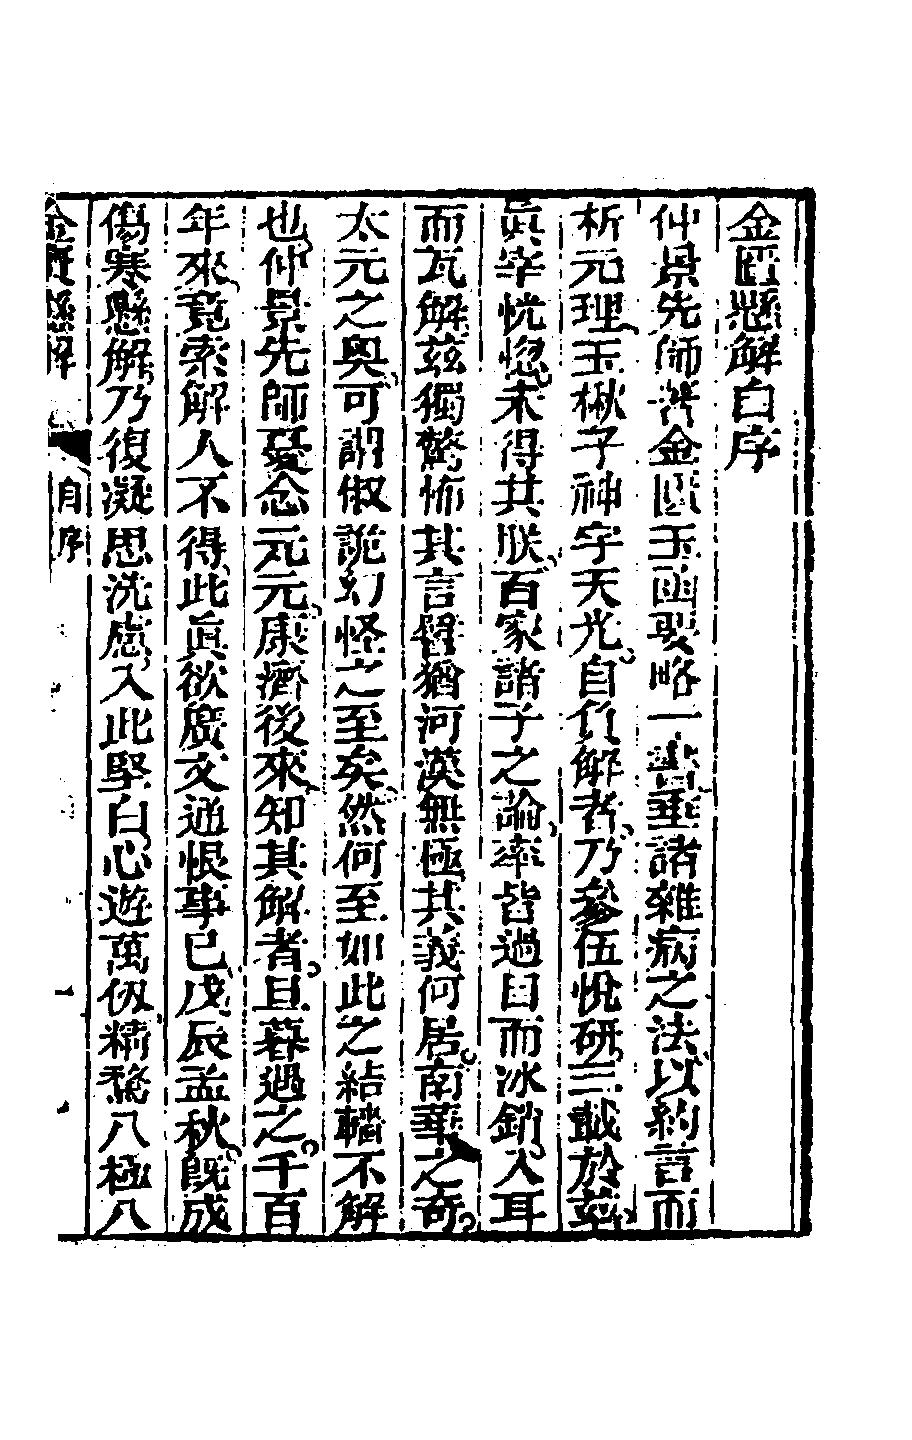 金匱懸解自序
仲景先師著金匱玉函要略一書垂諸雜病之法以約言而
析元理玉楸子神宇天光自負解者乃參伍悅研三載於茲
眞宰恍惚未得其朕百家諸子之論率皆過目而冰銷入耳
而瓦解茲獨驚怖其言譬猶河漢無極其義何居南華之奇
太元之奧可謂俶詭幻怪之至矣然何至如此之結轖不解
也仲景先師憂念元元康濟後來知其解者旦暮遇之千百
年來竟索解人不得此眞欲廣文通恨事已戊辰孟秋旣成
傷寒懸解乃復凝思洗慮入此堅白心遊萬仭精騖八極八
金匱懸解
自序